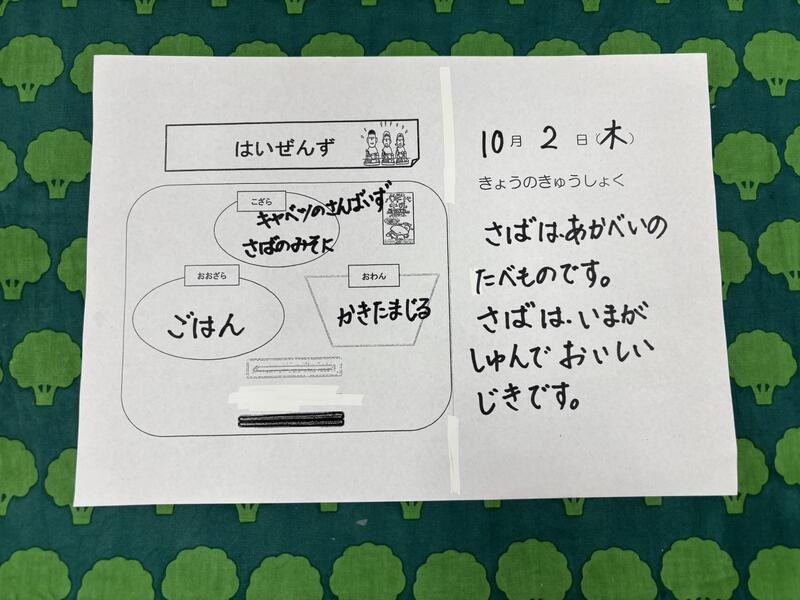 はいぜんず
こざら
キャベツのさんばいず
さばのみそに
おおざら
ごはん
おわん
かきたまじる
10月2日(木)
きょうのきゅうしょく
さばは、あかべいの
たべものです。
さばは、いまが
しゅんでおいしい
じきです。